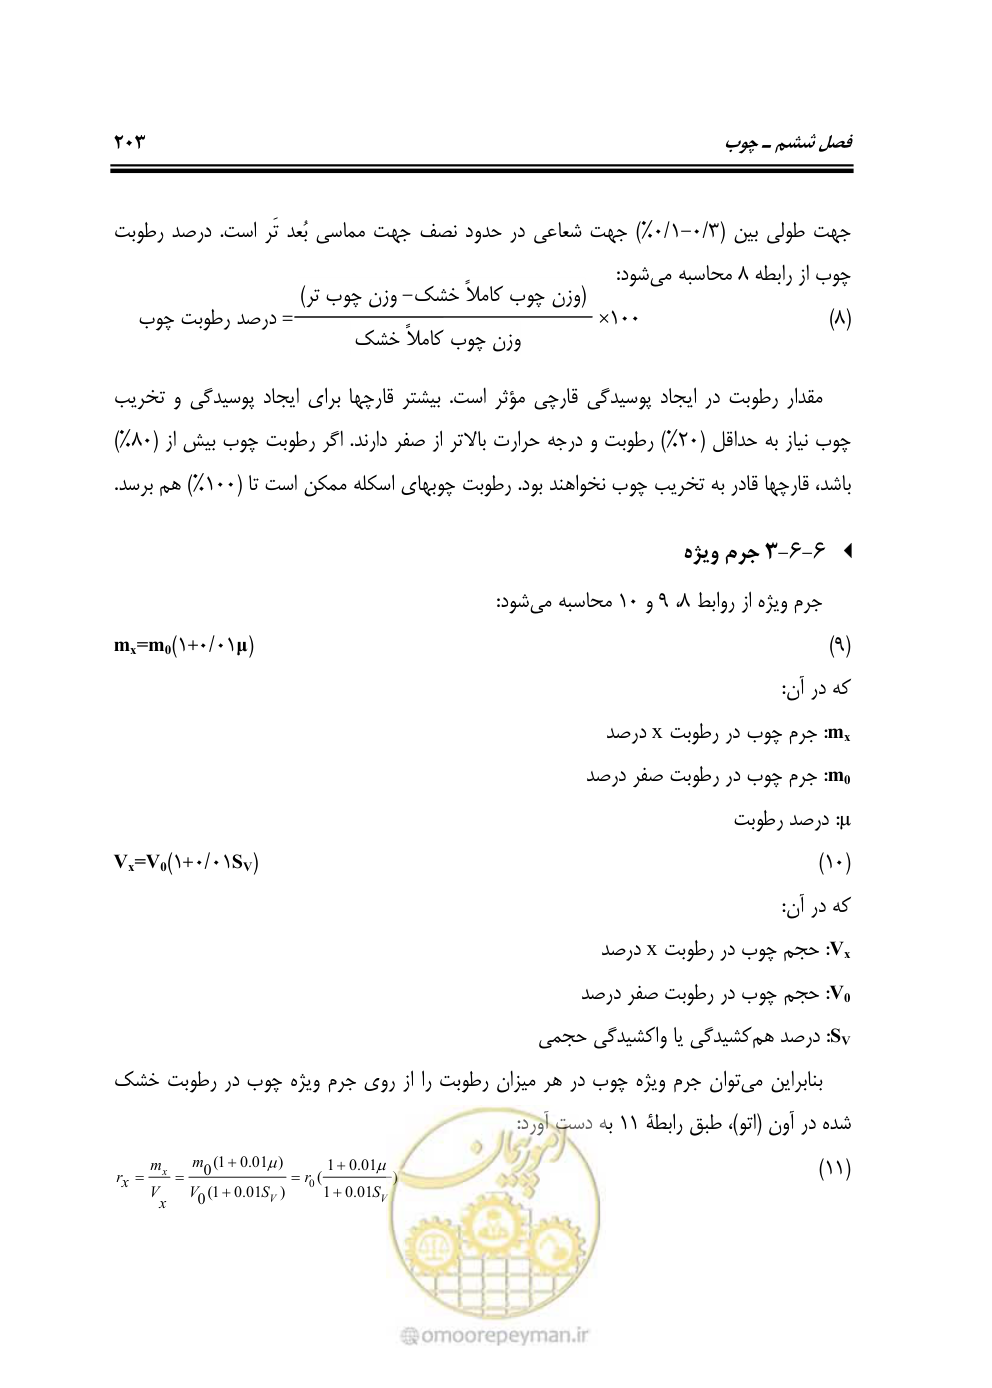 فصل ششم ـ چوب ۲۰۳
جهت طولی بین (۰/۳–۰/۱٪) جهت شعاعی در حدود نصف جهت مماسی بُعد تَر است. درصد رطوبت
چوب از رابطه ۸ محاسبه می‌شود:
(۸) درصد رطوبت چوب = (وزن چوب کاملاً خشک – وزن چوب تر) / وزن چوب کاملاً خشک ×۱۰۰
مقدار رطوبت در ایجاد پوسیدگی قارچی مؤثر است. بیشتر قارچها برای ایجاد پوسیدگی و تخریب
چوب نیاز به حداقل (۲۰٪) رطوبت و درجه حرارت بالاتر از صفر دارند. اگر رطوبت چوب بیش از (۸۰٪)
باشد، قارچها قادر به تخریب چوب نخواهند بود. رطوبت چوبهای اسکله ممکن است تا (۱۰۰٪) هم برسد.
۳-۶-۶ جرم ویژه
جرم ویژه از روابط ۸، ۹ و ۱۰ محاسبه می‌شود:
(۹) mx=m0(۱+۰/۰۱μ)
که در آن:
mx: جرم چوب در رطوبت x درصد
m0: جرم چوب در رطوبت صفر درصد
μ: درصد رطوبت
(۱۰) Vx=V0(۱+۰/۰۱SV)
که در آن:
Vx: حجم چوب در رطوبت x درصد
V0: حجم چوب در رطوبت صفر درصد
SV: درصد هم‌کشیدگی یا واکشیدگی حجمی
بنابراین می‌توان جرم ویژه چوب در هر میزان رطوبت را از روی جرم ویژه چوب در رطوبت خشک
شده در آون (اتو)، طبق رابطۀ ۱۱ به دست آورد:
(۱۱) rx = mx / Vx = m0(1 + 0.01μ) / V0(1 + 0.01SV) = r0(1 + 0.01μ / 1 + 0.01SV)
امور پیمان
@omoorepeyman.ir